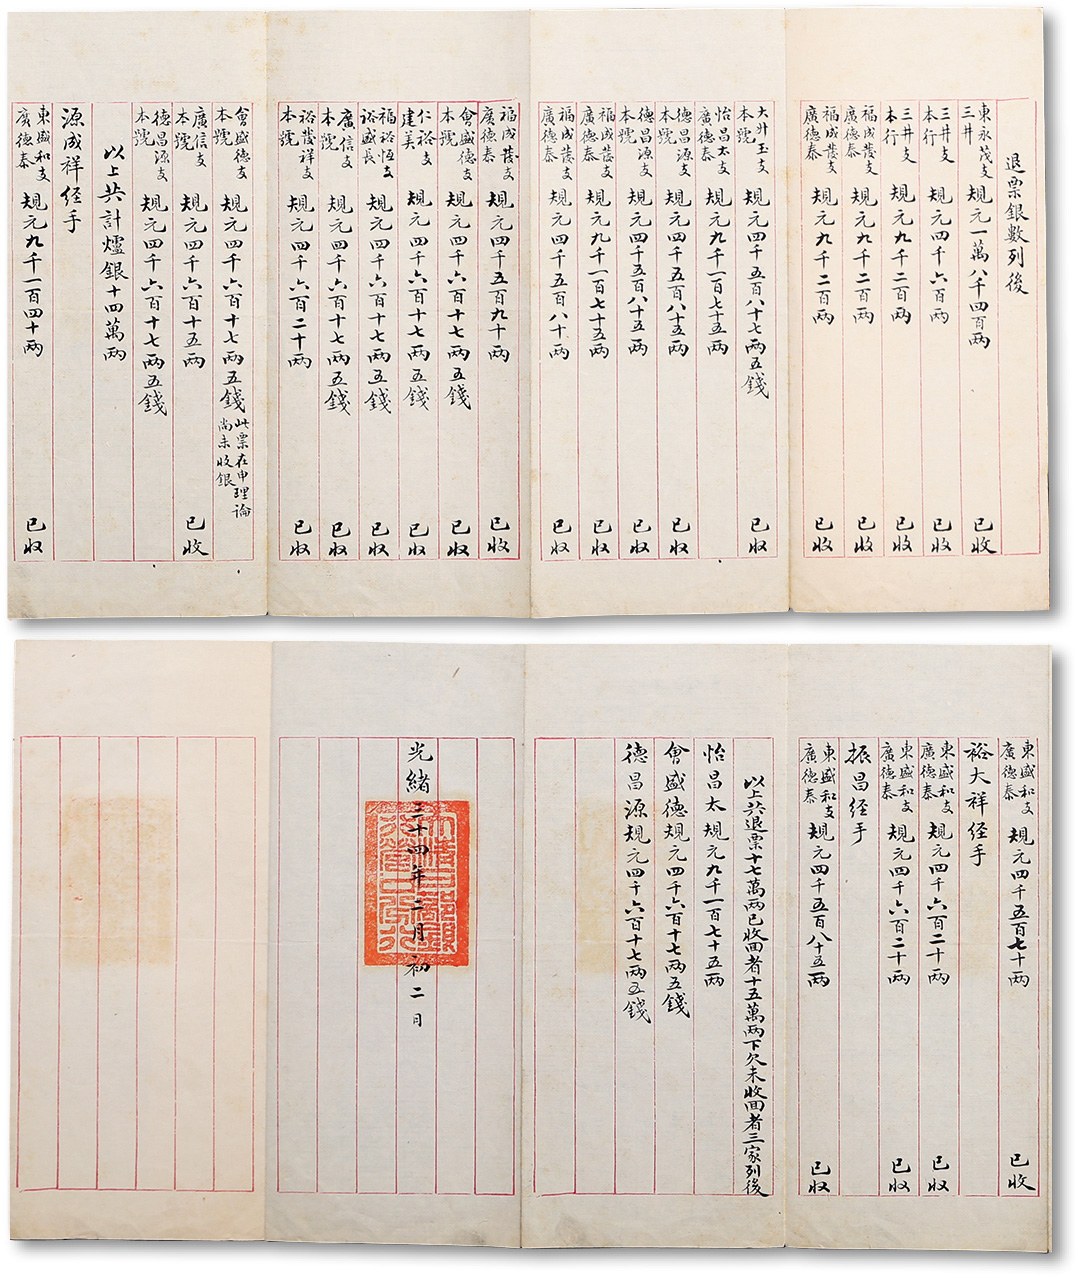 退票銀數列後
東永茂支三井 規元一萬八千四百兩 已收
三井支本行 規元四千六百兩 已收
三井支本行 規元九千二百兩 已收
福成發支廣德泰 規元九千二百兩 已收
福成發支廣德泰 規元九千二百兩 已收
大升玉支本號 規元四千五百八十七兩五錢 已收
怡昌太支廣德泰 規元九千一百七十五兩
德昌源支本號 規元四千五百八十五兩 已收
德昌源支本號 規元四千五百八十五兩 已收
福成發支廣德泰 規元九千一百七十五兩 已收
福成發支廣德泰 規元四千五百八十兩 已收
福成發支廣德泰 規元四千五百九十兩 已收
會盛德支本號 規元四千六百十七兩五錢 已收
仁裕支建美 規元四千六百十七兩五錢 已收
福裕恆支裕盛長 規元四千六百十七兩五錢 已收
廣信支本號 規元四千六百十七兩五錢 已收
裕發祥支本號 規元四千六百二十兩 已收
會盛德支本號 規元四千六百十七兩五錢 此票在申理論尚未收銀
廣信支本號 規元四千六百十五兩 已收
德昌源支本號 規元四千六百十七兩五錢
以上共計爐銀十四萬兩
源成祥經手
東盛和支廣德泰 規元九千一百四十兩 已收
東盛和支廣德泰 規元四千五百七十兩 已收
裕大祥經手
東盛和支廣德泰 規元四千六百二十兩 已收
東盛和支廣德泰 規元四千六百二十兩 已收
振昌經手
東盛和支廣德泰 規元四千五百八十五兩 已收
以上共退票十七萬兩已收回者十五萬兩下欠未收回者三家列後
怡昌太規元九千一百七十五兩
會盛德規元四千六百十七兩五錢
德昌源規元四千六百十七兩五錢
光緒三十四年二月初二日